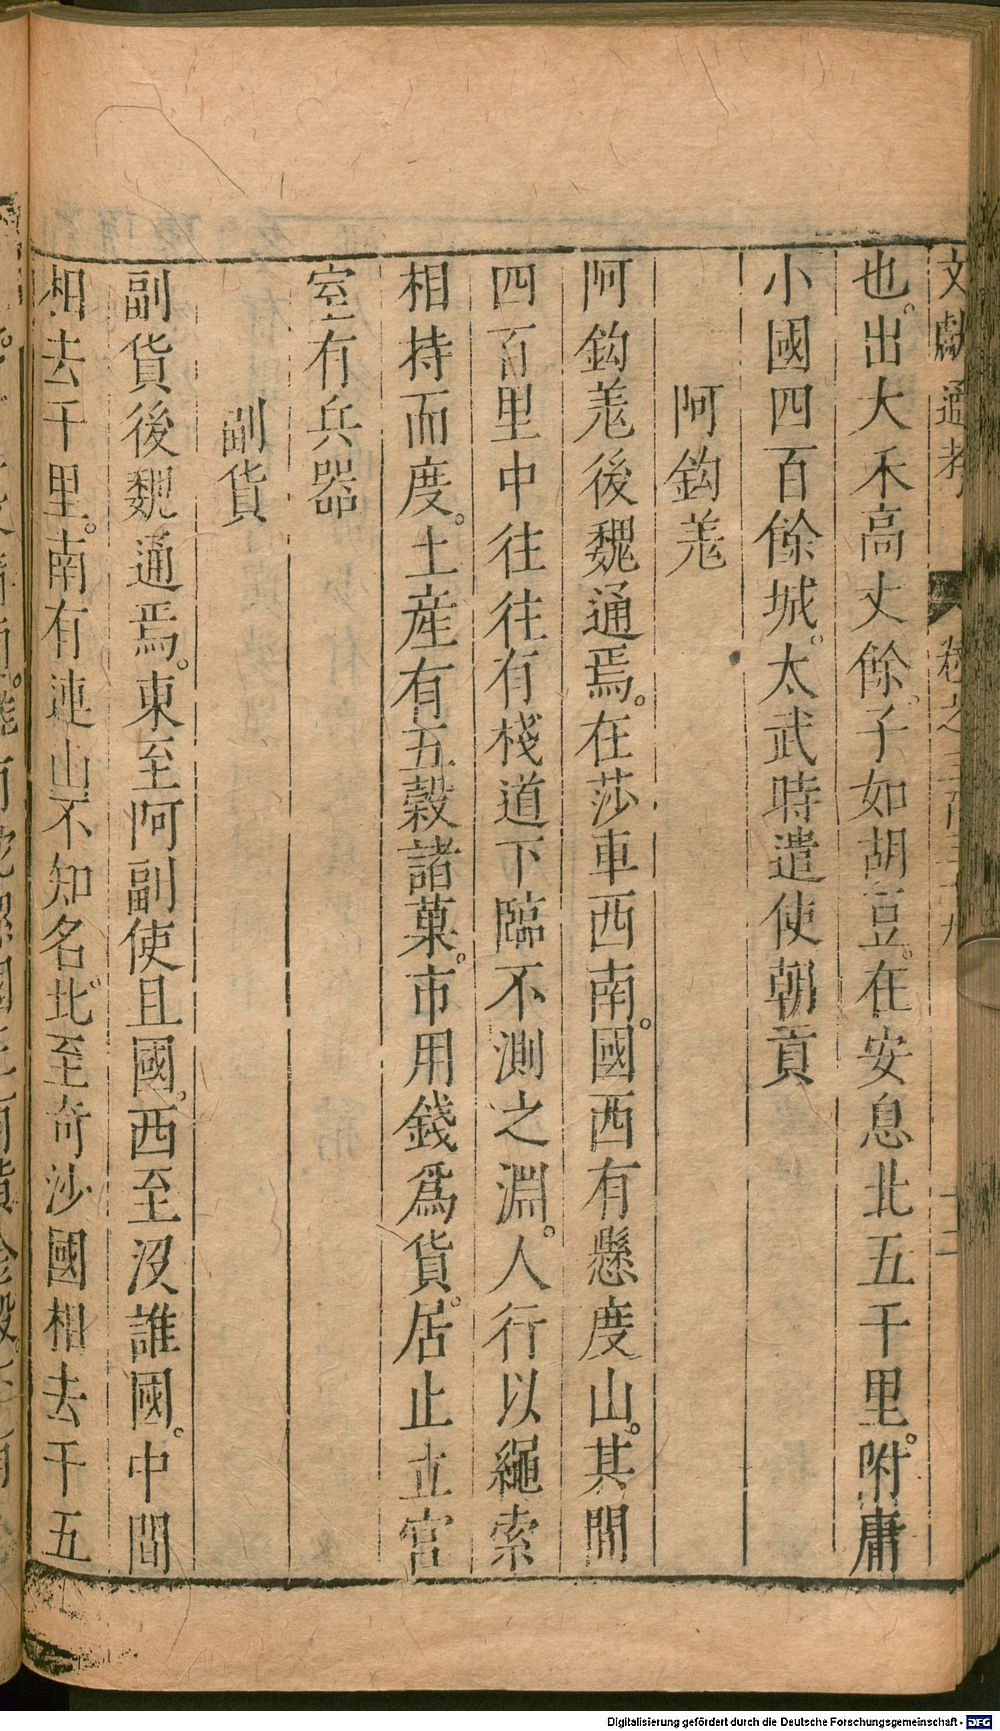 文獻通考 卷之三百三十九 十二
也。出大禾高丈餘。子如胡豆。在安息北五千里。附庸
小國四百餘城。太武時遣使朝貢
阿鈎羗
阿鈎羗後魏通焉。在莎車西南。國西有懸度山。其間
四百里中往往有棧道下臨不測之淵。人行以繩索
相持而度。土産有五穀諸菓。市用錢爲貨。居止立宫
室有兵器
副貨
副貨後魏通焉。東至阿副使且國。西至没誰國。中間
相去千里。南有連山不知名。北至奇沙國相去千五
Digitalisierung gefördert durch die Deutsche Forschungsgemeinschaft - DFG